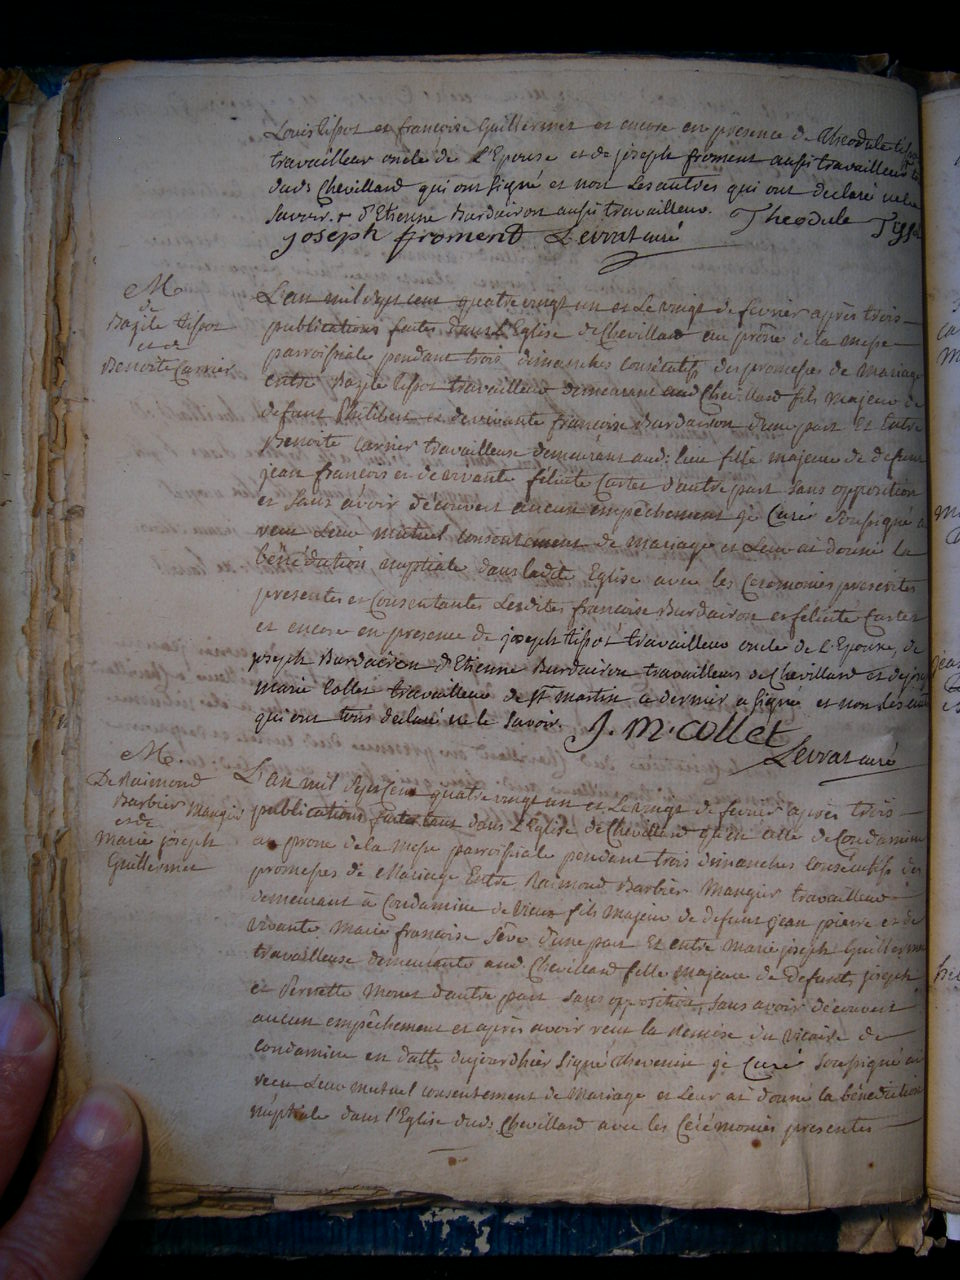 Louis tissot et francoise Guillermet et encore en presence de Theodule tissot
travailleur oncle de L'Epouse et de joseph froment aussi travailleur
dud. Chevillard qui ont signé et non Les autres qui ont declaré ne le
savoir. + d'Etienne Burdairon aussi travailleur. Theodule Tissot
joseph froment Levrat curé
M.
de
Bazile tissot
et de
Benoite Carrier
L'an mil sept cent quatre vingt un et Le vingt de fevrier après trois
publications faites dans L'Eglise de Chevillard au prône de la messe
parroissiale pendant trois dimanches consécutifs des promesses de Mariage
entre Bazile tissot travailleur demeurant aud. Chevillard fils majeur de
defunt Philibert et de vivante francoise Burdairon d'une part Et Entre
Benoite Carrier travailleuse demeurant aud: lieu fille majeure de defunt
jean francois et de vivante félicité Cartet d'autre part sans opposition
et sans avoir découvert aucun empêchement je Curé soussigné ai
reçu Leur mutuel consentement de mariage et Leur ai donné la
bénédiction nuptiale dans ladite Eglise avec les Ceremonies prescrites
presentes et Consentantes Lesdites francoise Burdairon et félicité Cartet
et encore en presence de joseph tissot travailleur oncle de L'Epoux, de
joseph Burdairon d'Etienne Burdairon travailleurs de Chevillard et de joseph
marie Collet travailleur de St martin ce dernier a signé et non Les autres
qui ont tous declaré ne le savoir. J. M. collet
Levrat curé
M.
De Raimond
Barbier Mangier
et de
Marie joseph
Guillermet
L'an mil sept cent quatre vingt un et Le vingt de fevrier après trois
publications faites tant dans L'Eglise de Chevillard qu'en celle de Condamine
au prone de la messe parroissiale pendant trois dimanches consecutifs des
promesses de Mariage Entre Raimond Barbier Mangier travailleur
demeurant à Condamine de vieux fils Majeur de defunt jean pierre et de
vivante Marie francoise Sève d'une part Et entre Marie joseph Guillermet
travailleuse demeurante aud. Chevillard fille majeure de defunts joseph
et Pernette Monet d'autre part sans opposition, sans avoir découvert
aucun empêchement et après avoir veu la remise du Vicaire de
Condamine en datte dujourdhier signé thevenin je Curé soussigné ai
reçu Leur mutuel consentement de Mariage et Leur ai donné la bénédiction
nuptiale dans l'Eglise dud. Chevillard avec les Cérémonies presentes